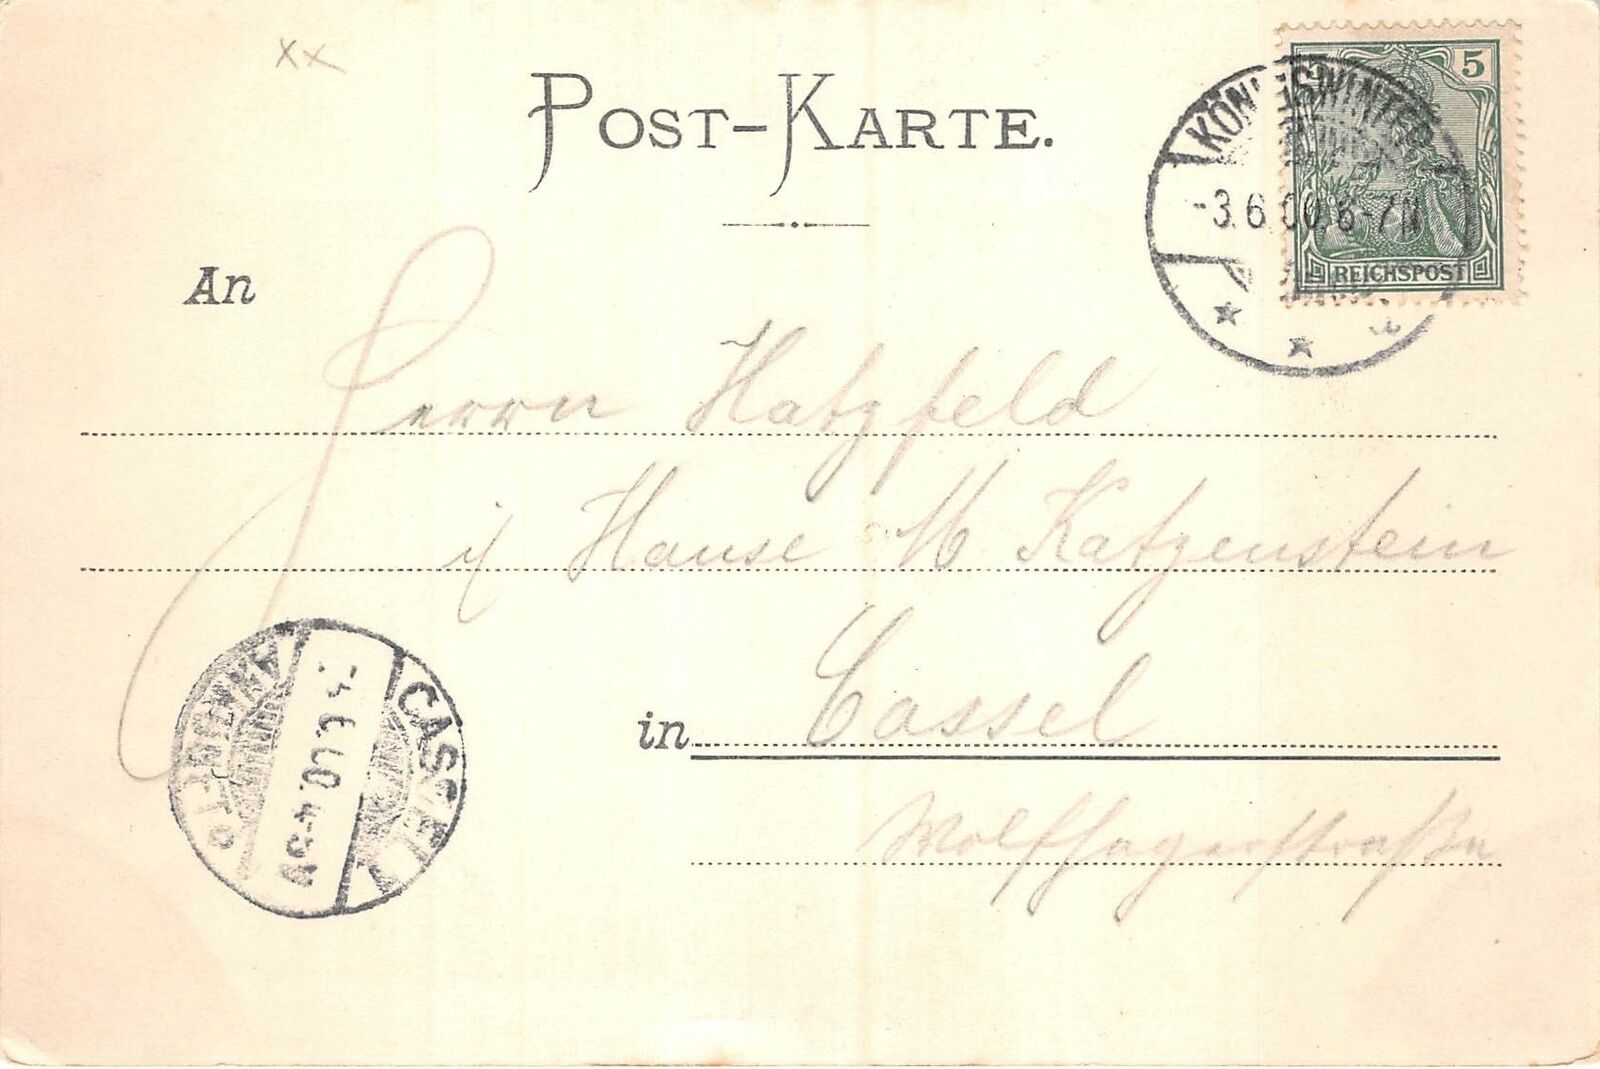 xx
POST-KARTE.
5
REICHSPOST
KÖNIGSWINTER
-3.6.00. 6-7N
An
Herrn Hatzfeld
i/ Hause M Katzenstein
in Cassel
Wolfhagerstraße
CASSEL 1
ANKUNFT